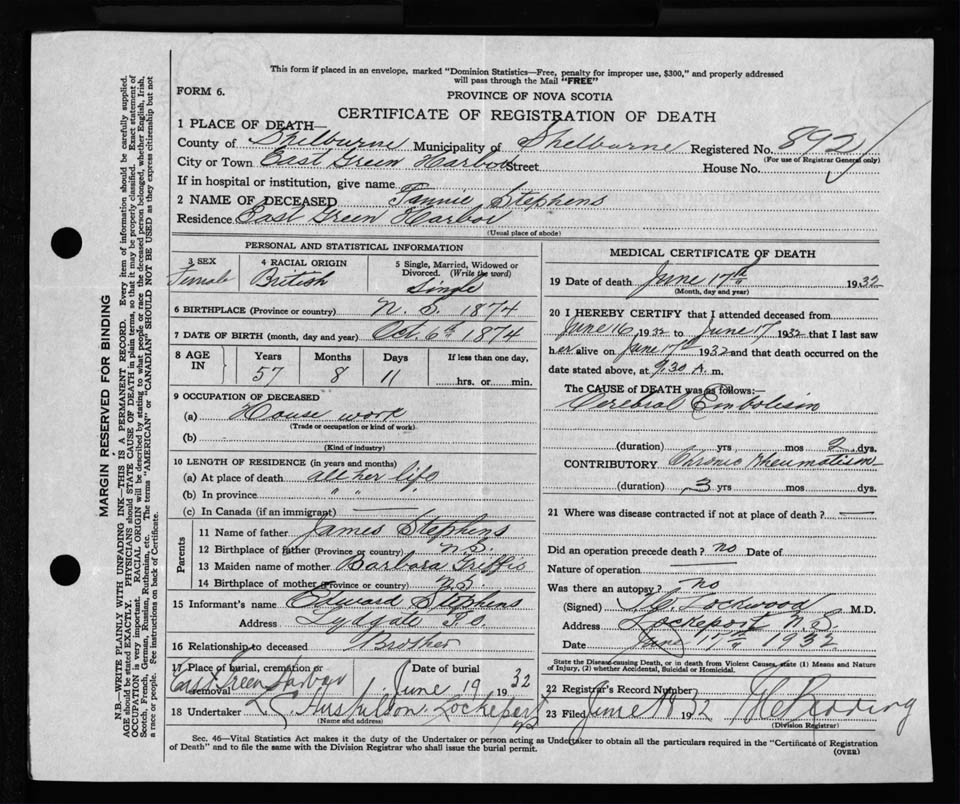 This form if placed in an envelope, marked "Dominion Statistics—Free, penalty for improper use, $300," and properly addressed
will pass through the Mail "FREE"
FORM 6.
PROVINCE OF NOVA SCOTIA
CERTIFICATE OF REGISTRATION OF DEATH
1 PLACE OF DEATH—
County of Shelburne Municipality of Shelburne Registered No. 892
(For use of Registrar General only)
City or Town East Green Harbor Street House No.
If in hospital or institution, give name
2 NAME OF DECEASED Fannie Stephens
Residence East Green Harbor
(Usual place of abode)
PERSONAL AND STATISTICAL INFORMATION
3 SEX Female
4 RACIAL ORIGIN British
5 Single, Married, Widowed or Divorced. (Write the word) Single
6 BIRTHPLACE (Province or country) N. S. 1874
7 DATE OF BIRTH (month, day and year) Oct. 6th 1874
8 AGE IN Years 57 Months 8 Days 11 If less than one day, hrs. or min.
9 OCCUPATION OF DECEASED
(a) House work
(Trade or occupation or kind of work)
(b)
(Kind of industry)
10 LENGTH OF RESIDENCE (in years and months)
(a) At place of death all her life
(b) In province " "
(c) In Canada (if an immigrant) —
Parents
11 Name of father James Stephens
12 Birthplace of father (Province or country) N.S.
13 Maiden name of mother Barbara
14 Birthplace of mother (Province or country) N.S
15 Informant's name Edward Stephens
Address Lydgate P.O.
16 Relationship to deceased Brother
17 Place of burial, cremation or removal East Green Harbor
Date of burial June 19 1932
18 Undertaker Lockeport N.S
(Name and address)
MEDICAL CERTIFICATE OF DEATH
19 Date of death June 17th 1932
(Month, day and year)
20 I HEREBY CERTIFY that I attended deceased from
June 16 1932 to June 17 1932 that I last saw
her alive on June 17th 1932 and that death occurred on the
date stated above, at 9.30 A. m.
The CAUSE of DEATH was as follows:—
Cerebral Embolism
(duration) yrs mos 2 dys.
CONTRIBUTORY Chronic rheumatism
(duration) 3 yrs. mos. dys.
21 Where was disease contracted if not at place of death? —
Did an operation precede death? no Date of
Nature of operation —
Was there an autopsy? no
(Signed) Lockwood M.D.
Address Lockeport N.S.
Date June 17th 1932
State the Disease causing Death, or in death from Violent Causes, state (1) Means and Nature
of Injury, (2) whether Accidental, Suicidal or Homicidal.
22 Registrar's Record Number
23 Filed June 18 1932
(Division Registrar)
Sec. 46—Vital Statistics Act makes it the duty of the Undertaker or person acting as Undertaker to obtain all the particulars required in the "Certificate of Registration
of Death" and to file the same with the Division Registrar who shall issue the burial permit.
(OVER)
MARGIN RESERVED FOR BINDING
N.B.—WRITE PLAINLY WITH UNFADING INK—THIS IS A PERMANENT RECORD. Every item of information should be carefully supplied.
AGE should be stated EXACTLY. PHYSICIANS should STATE CAUSE OF DEATH in plain terms, so that it may be properly classified. Exact statement of
OCCUPATION is very important. RACIAL ORIGIN will be described by stating to what people or race the deceased person belonged, whether English, Irish,
Scotch, French, German, Russian, Ruthenian, etc. The terms "AMERICAN" or "CANADIAN" SHOULD NOT BE USED as they express citizenship but not
a race or people. See instructions on back of Certificate.